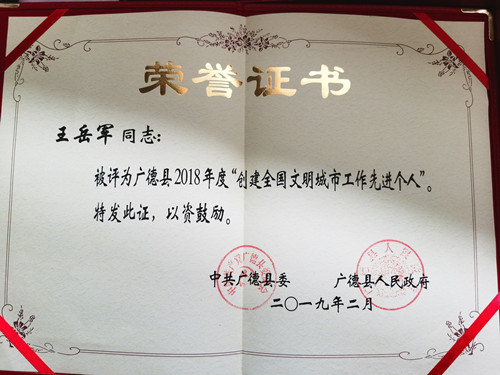 荣誉证书
王岳军 同志：
被评为广德县2018年度“创建全国文明城市工作先进个人”。
特发此证，以资鼓励。
中共广德县委 广德县人民政府
二〇一九年二月